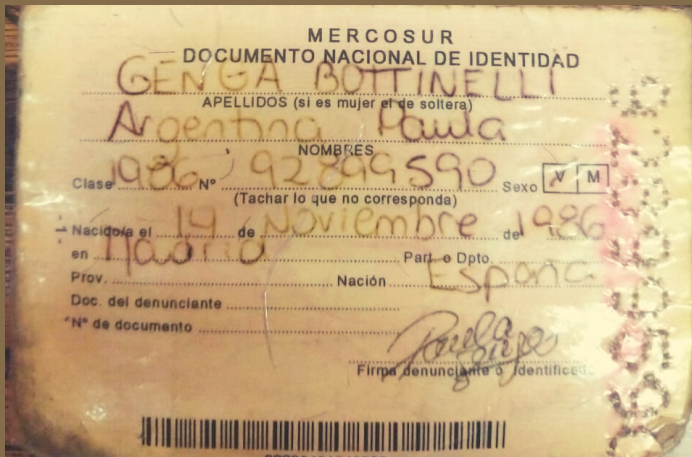 MERCOSUR
DOCUMENTO NACIONAL DE IDENTIDAD
GENGA BOTTINELLI
APELLIDOS (si es mujer el de soltera)
Argentina Paula
NOMBRES
Clase 1986 Nº 92899590 Sexo V M
(Tachar lo que no corresponda)
Nacido/a el 14 de Noviembre de 1986
en Madrid Part. o Dpto.
Prov. Nación España
Doc. del denunciante
Nº de documento
Paula Genga
Firma denunciante o identificado
-1-